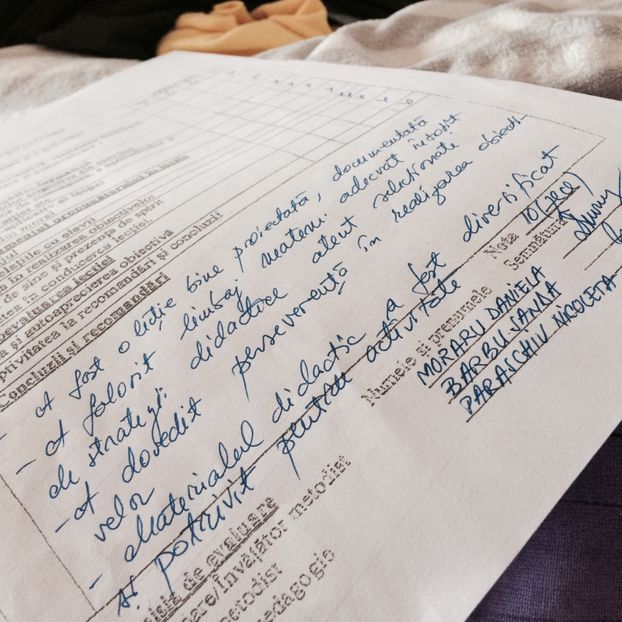 relațiile cu elevii
în realizarea obiectivelor
de sine și prezența de spirit
în conducerea lecției
evaluarea lecției
și autoaprecierea obiectivă
privitatea la recomandări și concluzii
Concluzii și recomandări
- A fost o lecție bine proiectată, documentată
- A folosit limbaj matern. adecvat însoțit
de strategii didactice atent selecționate
- A dovedit perseverență în realizarea obiecti-
velor
- Materialul didactic a fost diversificat
și potrivit pentru activitate
Nota 10 (zece)
Numele și prenumele Semnătura
MORARU DANIELA
BARBU VANDA
PARASCHIV NICOLETA
de evaluare
/învățător metodist
metodist
pedagogie